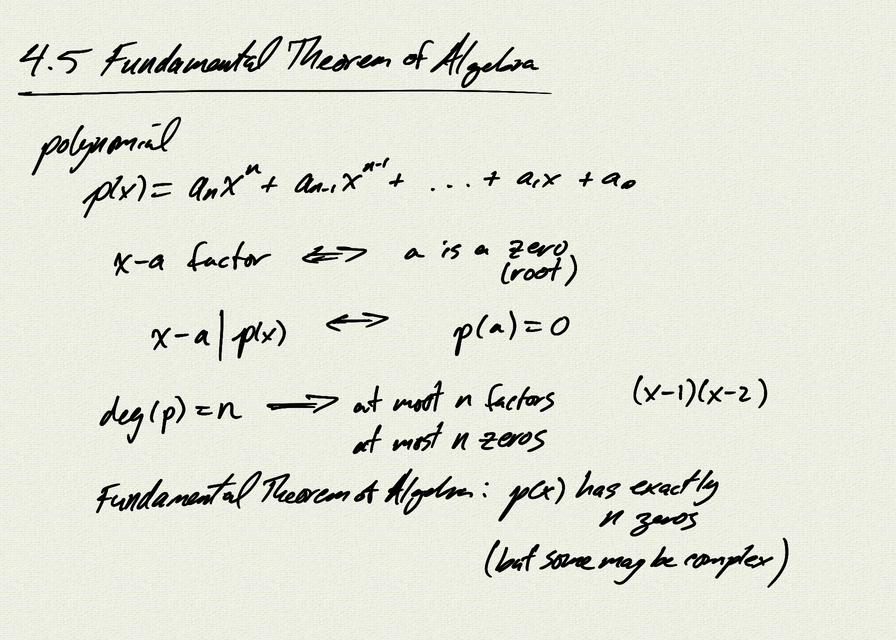 4.5 Fundamental Theorem of Algebra
polynomial
p(x) = aₙxⁿ + aₙ₋₁xⁿ⁻¹ + ... + a₁x + a₀
x-a factor ⟺ a is a zero
(root)
x-a | p(x) ⟷ p(a) = 0
deg(p) = n ⟹ at most n factors (x-1)(x-2)
at most n zeros
Fundamental Theorem of Algebra: p(x) has exactly
n zeros
(but some may be complex)